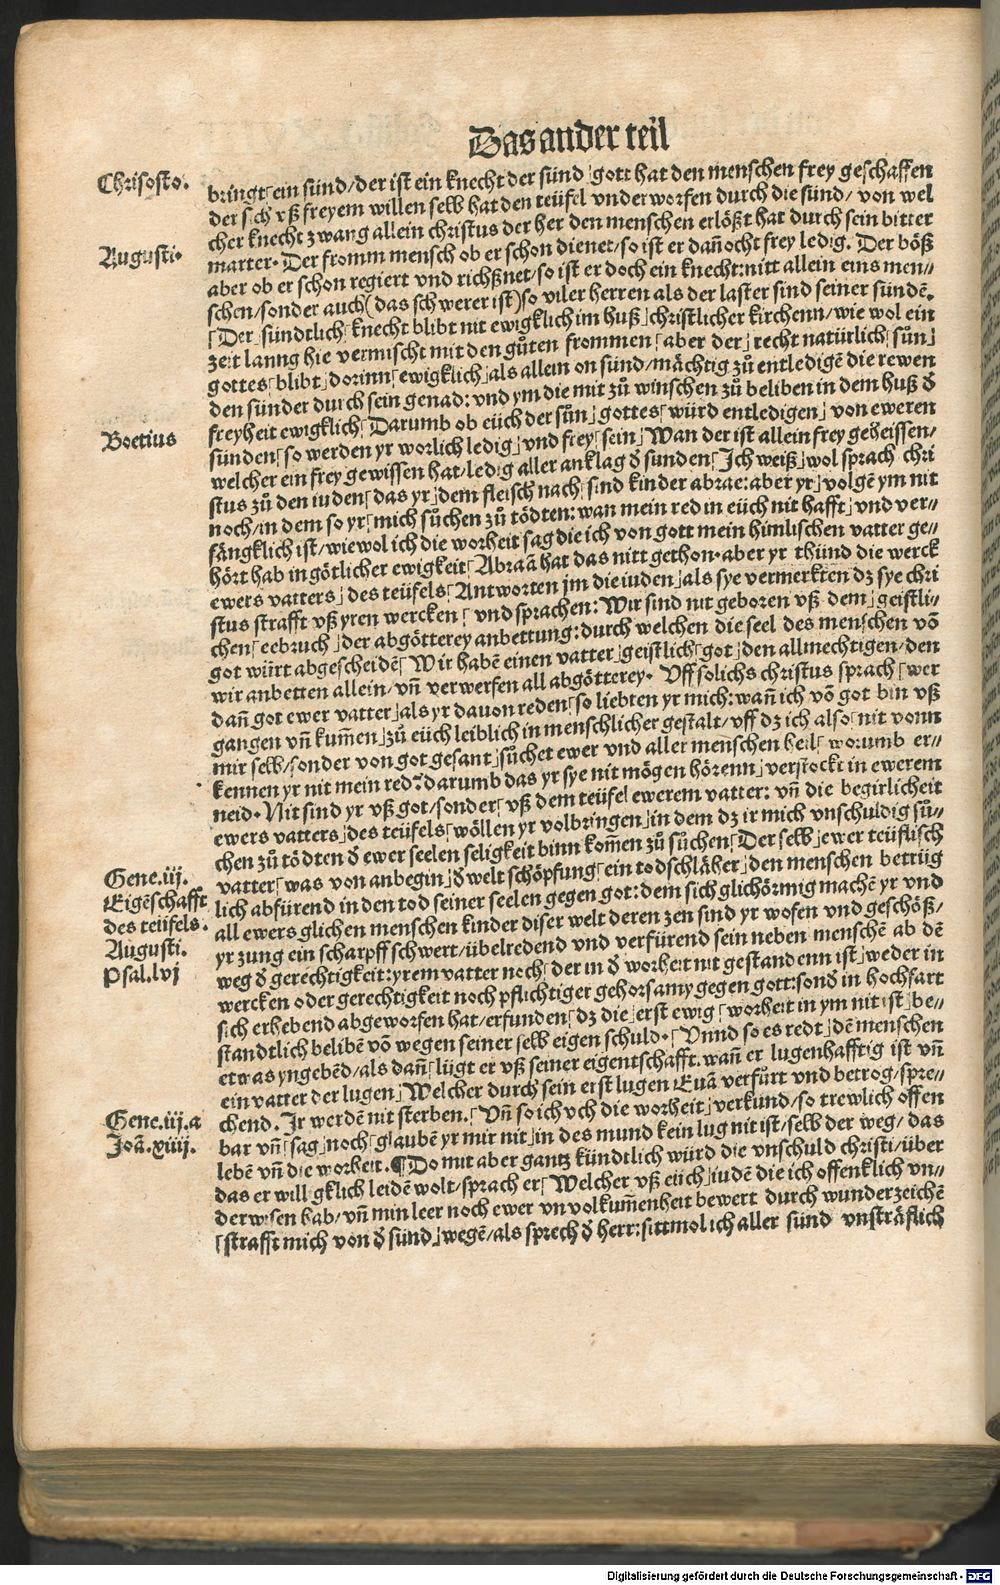 Das ander teil
Chrisosto.
bringt ein sünd/der ist ein knecht der sünd⌈gott hat den menschen frey geschaffen
der sich vß freyem willen selb hat den teüfel vnderworfen durch die sünd/ von wel
cher knecht zwang allein christus der her den menschen erlößt hat durch sein bitter
Augusti.
marter. Der fromm mensch ob er schon dienet/so ist er dañocht frey ledig. Der böß
aber ob er schon regiert vnd richßnet/so ist er doch ein knecht:nitt allein eins men//
schen/sonder auch(das schwerer ist)so viler herren als der laster sind seiner sündē.
⌈Der⌋sündtlich⌈knecht blibt nit ewigklich im huß⌋christlicher kirchenn/wie wol ein
zeit lanng hie vermischt mit den gůten frommen⌈aber der⌋recht natürlich⌈sůn⌋
gottes⌈blibt⌋dorinn⌈ewigklich⌋als allein on sünd/mächtig zů entledigē die rewen
den sünder durch sein genad: vnd ym die mit zů winschen zů beliben in dem huß đ
freyheit ewigklich⌈Darumb ob eüch der sůn⌋gottes⌈würd entledigen⌋von eweren
Boetius
sünden⌈so werden yr worlich ledig⌋vnd frey⌈sein⌋Wan der ist allein frey geheissen/
welcher ein frey gewissen hat/ledig aller anklag đ sunden⌈Ich weiß⌋wol sprach chri
stus zů den iuden⌈das yr⌋dem fleisch nach⌈sind kinder abrae:aber yr⌋volgē ym nit
noch/in dem so yr⌈mich sůchen zů tödten: wan mein red in eüch nit hafft⌋vnd ver//
fängklich ist/wiewol ich die worheit sag die ich von gott mein himlischen vatter ge⌈
hört hab in götlicher ewigkeit⌈Abraã hat das nitt gethon.aber yr thünd die werck
ewers vatters⌋des teüfels⌈Antworten jm die iuden⌋als sye vermerkten dz sye chri
stus strafft vß yren wercken⌈vnd sprachen: Wir sind nit geboren vß dem⌋geistli//
chen⌈eebruch⌋der abgötterey anbettung:durch welchen die seel des menschen vō
got würt abgescheidē⌈Wir habē einen vatter⌋geistlich⌈got⌋den allmechtigen/den
wir anbetten allein/vñ verwerfen all abgötterey. Uff solichs christus sprach⌈wer
dañ got ewer vatter⌋als yr dauon reden⌈so liebten yr mich: wañ ich vō got bin vß
gangen vñ kum̄en⌋zů eüch leiblich in menschlicher gestalt/vff dz ich also⌈nit vonn
mir selb/sonder von got gesant⌋sůchet ewer vnd aller menschen heil⌈worumb er//
kennen yr nit mein red?darumb das yr sye nit mögen hörenn⌋verstockt in ewerem
neid. Nit sind yr vß got/sonder⌈vß dem teüfel ewerem vatter: vñ die begirlicheit
ewers vatters⌋des teüfels⌈wöllen yr volbringen⌋in dem dz ir mich vnschuldig sů//
chen zů tödten đ ewer seelen seligkeit binn kom̄en zů sůchen⌈Der selb⌋ewer teüflisch
Gene.iij.
vatter⌈was von anbegin⌋đ welt schöpfung⌈ein todschläher⌋den menschen betrüg
Eigēschafft
lich abfürend in den tod seiner seelen gegen got:dem sich glichörmig machē yr vnd
des teüfels.
all ewers glichen menschen kinder diser welt deren zen sind yr wofen vnd geschöß/
Augusti.
yr zung ein scharpff schwert/übelredend vnd verfürend sein neben menschē ab dē
Psal.lvj
weg đ gerechtigkeit:yrem vatter noch⌈der in đ worheit nit gestandenn ist⌋weder in
wercken oder gerechtigkeit noch pflichtiger gehorsamy gegen gott:sonđ in hochfart
sich erhebend abgeworfen hat/erfunden⌈dz die⌋erst ewig⌈worheit in ym nit ist⌋be//
standtlich belibē vō wegen seiner selb eigen schuld.⌈Vnnd so es redt⌋dē menschen
etwas yngebēd/als dañ⌈lügt er vß seiner eigentschafft.wañ er lugenhafftig ist vñ
ein vatter der lugen⌋Welcher durch sein erst lugen Euã verfürt vnd betrog/spre//
Gene.iij.a
chend. Ir werdē nit sterben.⌈Vñ so ich vch die worheit⌋verkund/so trewlich offen
Joã.xiiij.
bar vñ⌈sag⌋noch⌈glaubē yr mir nit⌋in des mund kein lug nit ist/selb der weg/das
lebē vñ die worheit.¶Do mit aber gantz kündtlich würd die vnschuld christi/über
das er willigklich leidē wolt/sprach er⌈Welcher vß eüch⌋iudē die ich offenklich vn//
derwisen hab/vñ min leer noch ewer vnvolkum̄enheit bewert durch wunderzeichē
⌈strafft mich von đ sünd⌋wegē/als sprech đ herr:sittmol ich aller sünd vnsträflich
Digitalisierung gefördert durch die Deutsche Forschungsgemeinschaft - DFG